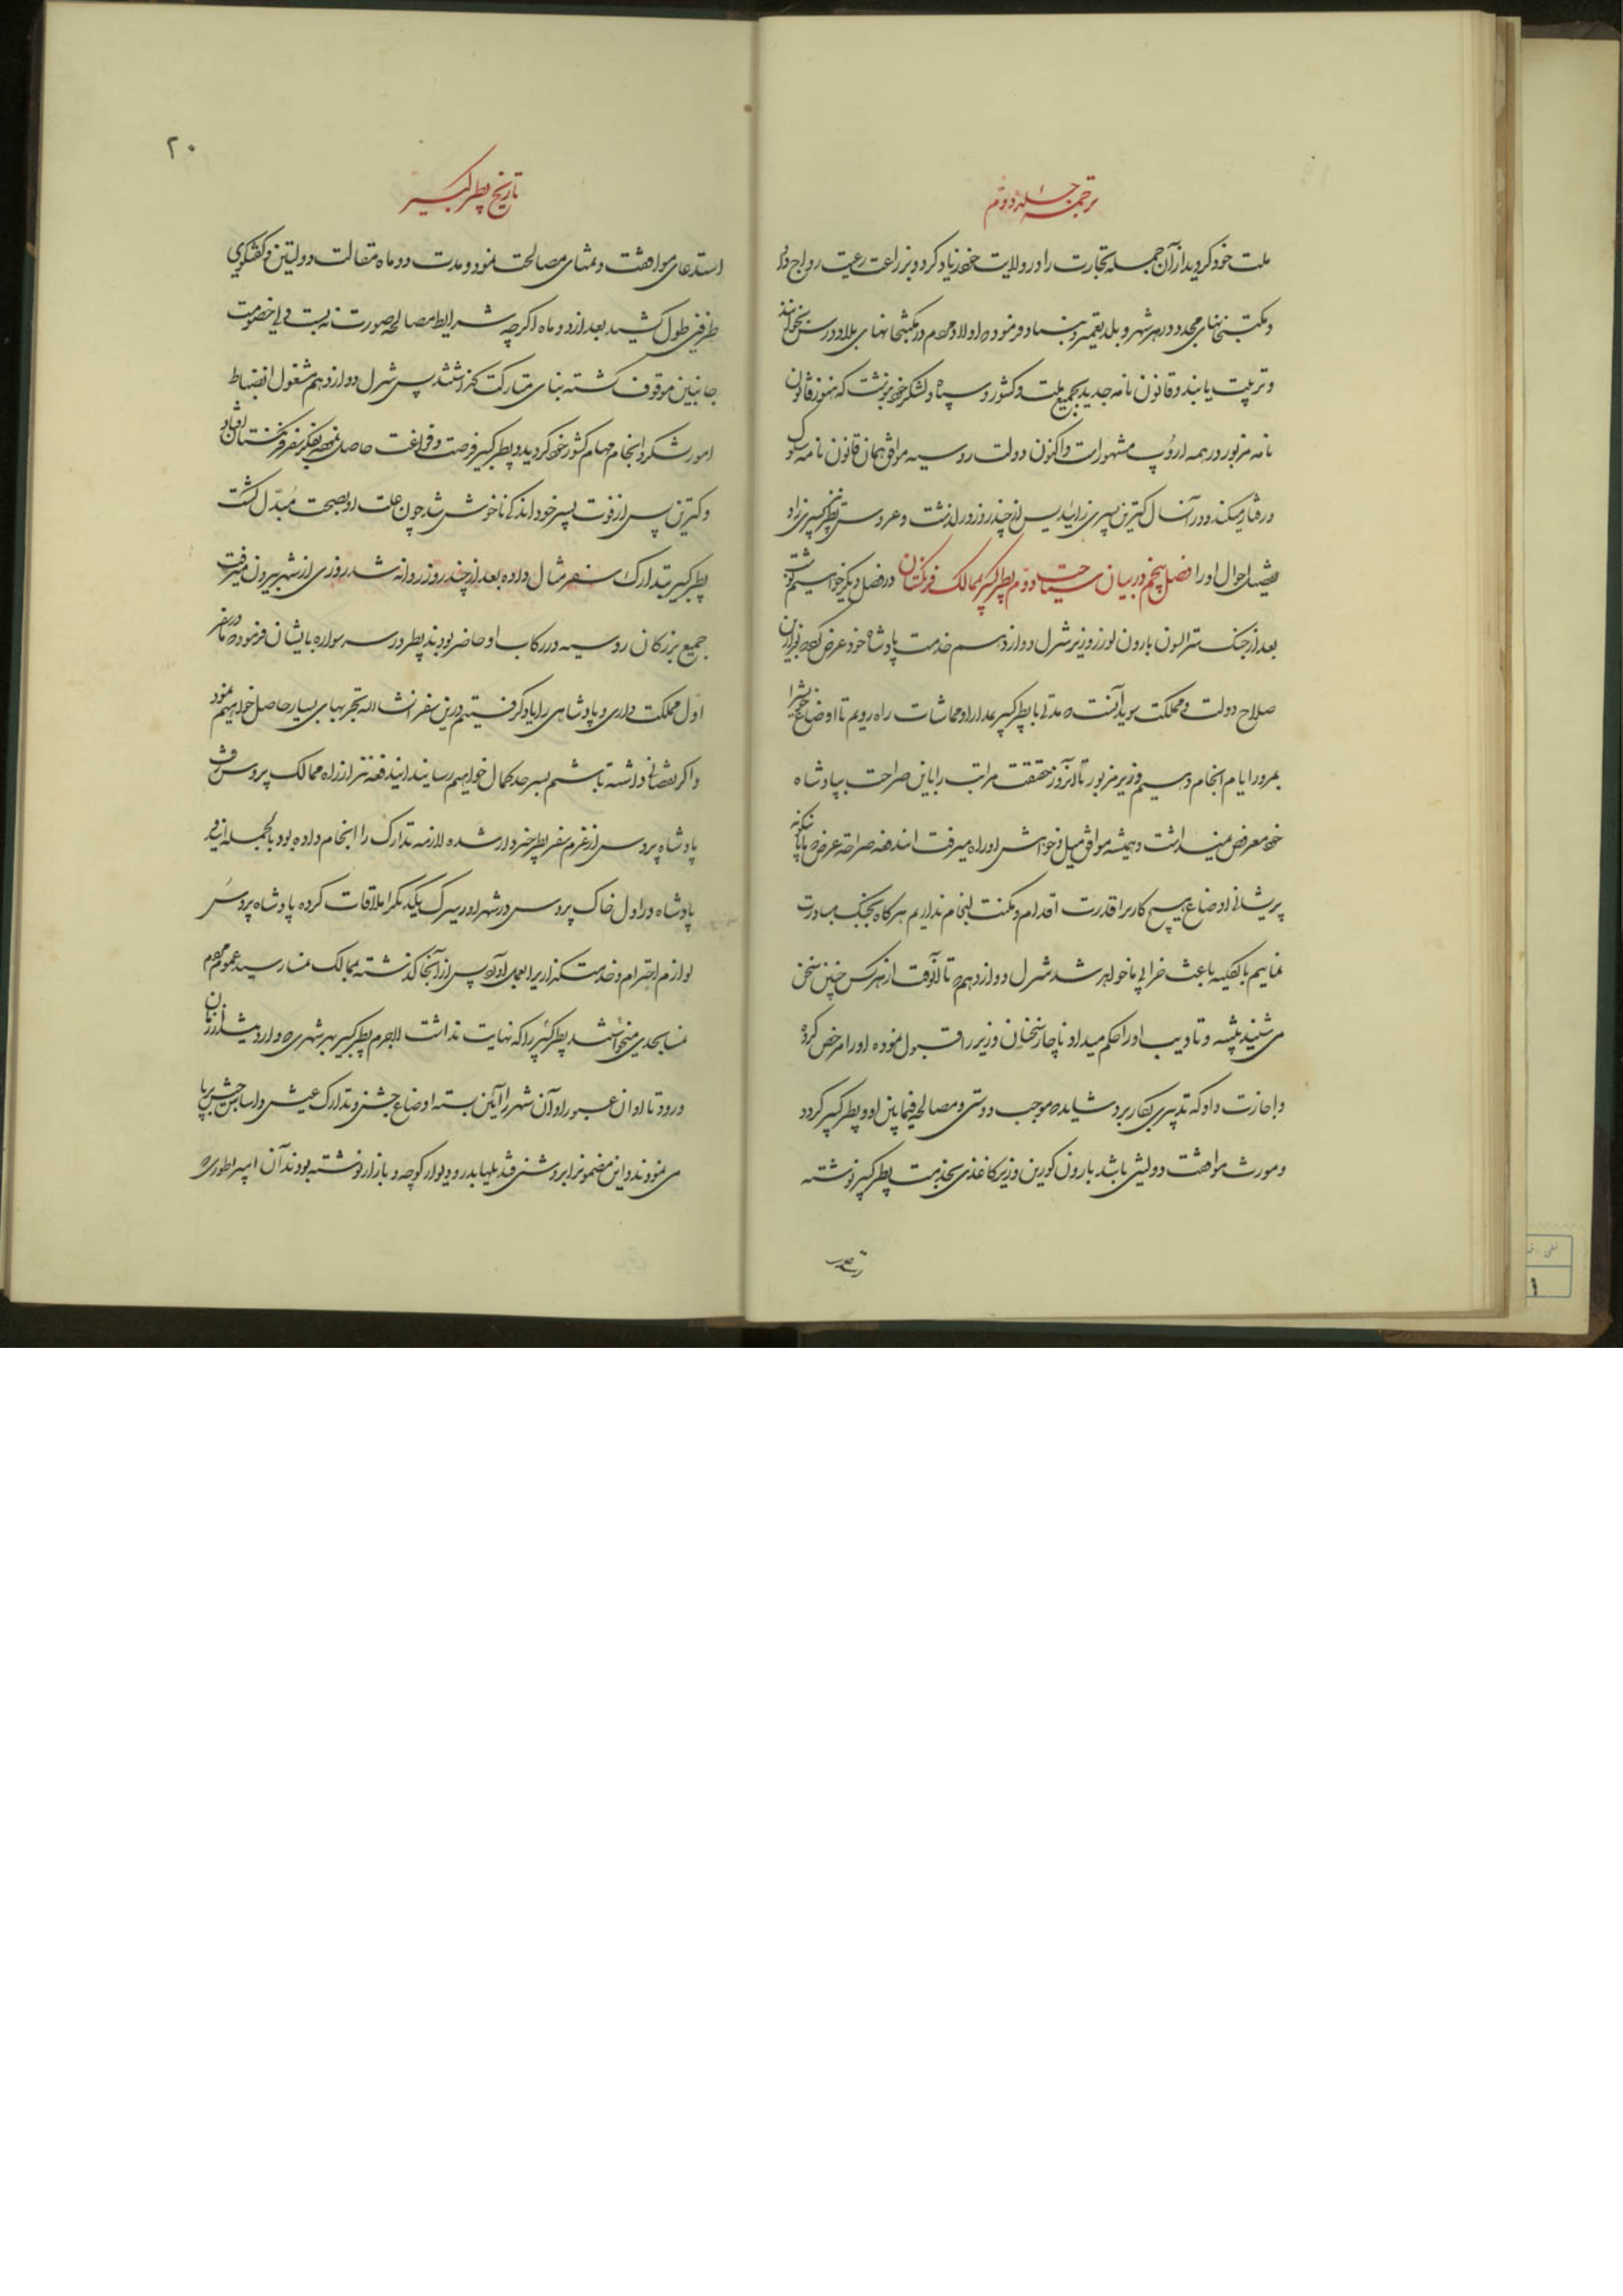 ترجمه جلد دوم
ملت خود گردید از آن جمله تجارت را در ولایت خود زیاد کرد و بزراعت رعیت رواج داد
و مکتبخانهای مجدد در هر شهر و بلد تعمیر و بنیاد فرموده اولاد مردم در مکتبخانهای بلاد درس بخوانند
و تربیت یابند و قانون نامه جدید بجمیع ملت و کشور و سپاه و لشکر خود نوشت که هنوز قانون
نامه مزبور در همه اروپ مشهور است و اکنون دولت روسیه موافق همان قانون نامه سلوک
و رفتار میکند و در آنسال کترین پسری زائید پس از چند روز در گذشت و عروس پطر کبیر نیز پسری زاد
تفصیل احوال او را در فصل دیگر خواهیم نوشت فصل پنجم در بیان سیاحت دوم پطر کبیر بممالک فرنگستان
بعد از جنک سترالسون بارون لورز وزیر شرل دوازدهم خدمت پادشاه خود عرض کرد
صلاح دولت و مملکت سوید آنست که مدتی با پطر کبیر بمدارا و مماشات راه رویم تا اوضاع خود را
بمرور ایام انجام دهیم وزیر مزبور تا آنروز حقیقت مراتب را باین صراحت بپادشاه
خود معروض نمیداشت و همیشه موافق میل و خواهش او راه میرفت ایندفعه صراحة عرض کرد با اینگونه
پریشانی اوضاع هیچ کار را قدرت اقدام و مکنت انجام نداریم هرگاه بجنک مبادرت
نمائیم بالکلیه باعث خرابی ما خواهد شد شرل دوازدهم که تا آنوقت از هر کس چنین سخن
می شنید تنبیه و تادیب او را حکم میداد ناچار سخنان وزیر را قبول نموده او را مرخص کرده
و اجازت داد که تدبیری بکار برد شاید که موجب دوستی و مصالحه فیمابین او و پطر کبیر گردد
و مورث موافقت دولتین باشد بارون کورین وزیر کاغذی بخدمت پطر کبیر نوشته
تاریخ پطر کبیر
۲۰
استدعای موافقت و تمنای مصالحت نمود و مدت دو ماه مقالت دولتین و گفتگوی
طرفین طول کشید بعد از دو ماه اگرچه شرایط مصالحه صورت نه بست ولی خصومت
جانبین موقوف گشته بنای متارکت گذاشتند پس شرل دوازدهم مشغول انضباط
امور لشکر و انجام مهام کشور خود گردید و پطر کبیر فرصت و فراغت حاصل نموده بفکر سفر فرنگستان افتاد
و کترین پس از فوت پسر خود اندکی ناخوش شد چون علت او بصحت مبدل گشت
پطر کبیر بتدارک سفر مثال داده بعد از چند روز روانه شد روزی از شهر بیرون میرفت
جمیع بزرکان روسیه در رکاب او حاضر بودند پطر در سه سواره بایشان فرموده ما در سفر
اول مملکت داری و پادشاهی را یاد گرفتیم درین سفر انشاالله تجربهای بسیار حاصل خواهیم نمود
و اگر نقصانی داشته باشیم بسر حد کمال خواهیم رسانید ایندفعه نیز از راه ممالک پروس رفت
پادشاه پروس از عزم سفر پطر خبردار شده لازمه تدارک را انجام داده بود بالجمله این دو
پادشاه در اول خاک پروس در شهر اوریبرک یکدیگر را ملاقات کرده پادشاه پروس
لوازم احترام و خدمتگذاریرا بعمل آورد پس از آنجا گذشته بممالک نمسا رسید عموم مردم
نمسا بحدی میخواستند پطر کبیر را که نهایت نداشت لاجرم پطر کبیر بهر شهری که وارد میشد از زمان
ورود تا اوان عبور او آن شهر را آئین بسته اوضاع جشن و تدارک عیش و اساس خوش برپا
می نمودند و این مضمونرا بروشنی قندیلها بدر و دیوار کوچه و بازار نوشته بودند آن امپراطوری که